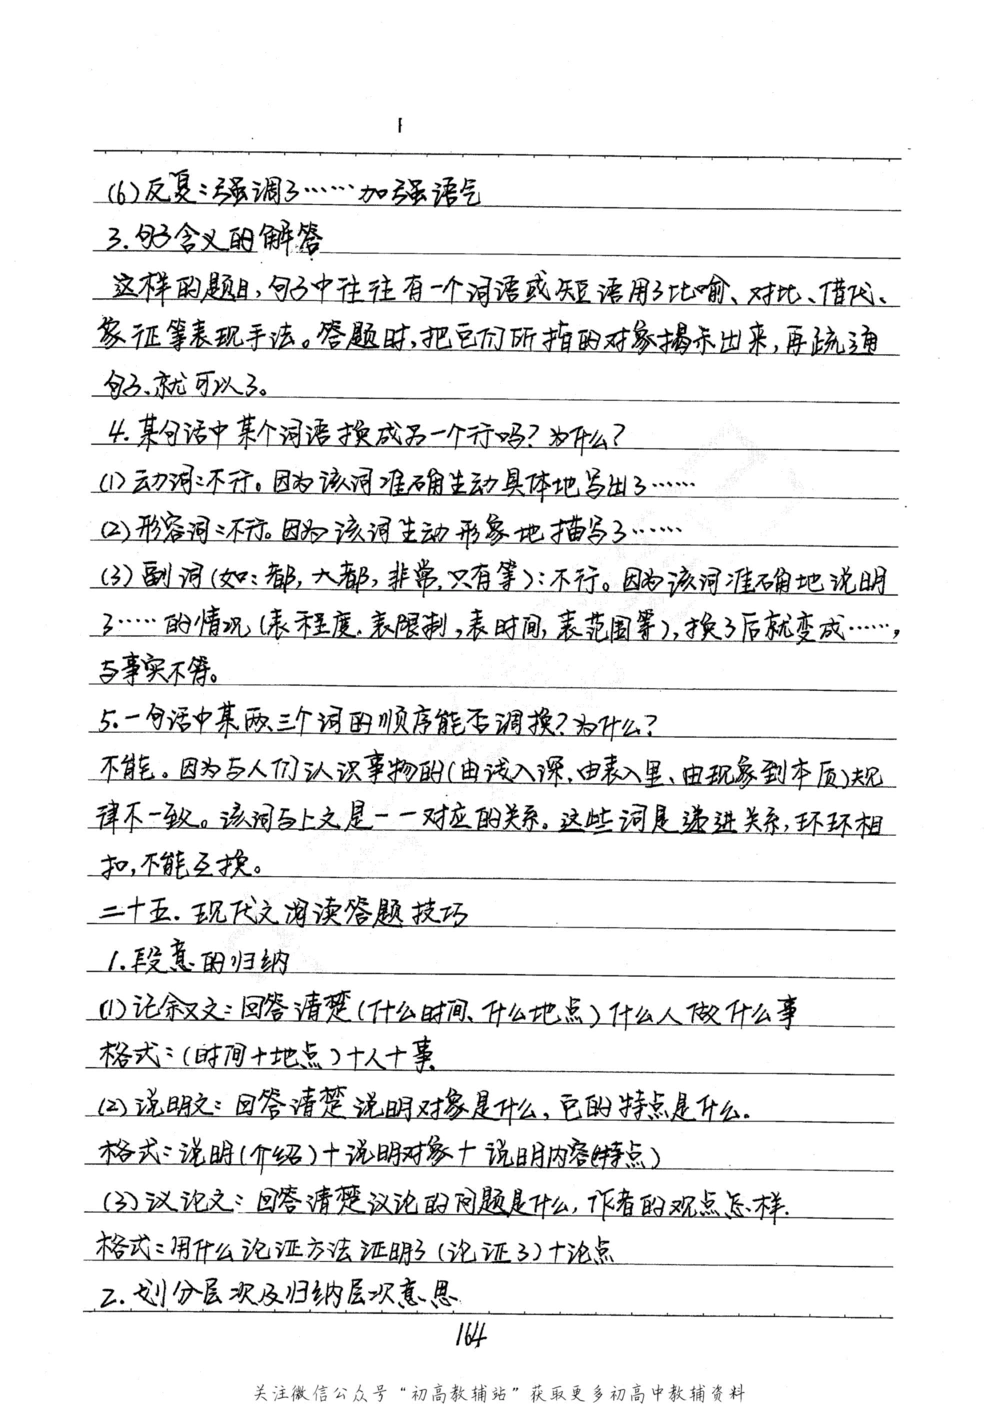 (6)反复:强调了……加强语气
3.句子含义的解答
这样的题目,句子中往往有一个词语或短语用了比喻、对比、借代、
象征等表现手法。答题时,把它们所指的对象揭示出来,再疏通
句子,就可以了。
4.某句话中某个词语换成另一个行吗?为什么?
(1)动词:不行。因为该词准确生动具体地写出了……
(2)形容词:不行。因为该词生动形象地描写了……
(3)副词(如:都,大都,非常,只有等):不行。因为该词准确地说明
了……的情况(表程度,表限制,表时间,表范围等),换了后就变成……,
与事实不符。
5.一句话中某两三个词的顺序能否调换?为什么?
不能。因为与人们认识事物的(由浅入深、由表入里、由现象到本质)规
律不一致。该词与上文是一一对应的关系。这些词是递进关系,环环相
扣,不能互换。
二十五.现代文阅读答题技巧
1.段意的归纳
(1)记叙文:回答清楚(什么时间、什么地点)什么人做什么事
格式:(时间+地点)+人+事.
(2)说明文:回答清楚说明对象是什么,它的特点是什么.
格式:说明(介绍)+说明对象+说明内容(特点)
(3)议论文:回答清楚议论的问题是什么,作者的观点怎样.
格式:用什么论证方法证明了(论证了)+论点
2.划分层次及归纳层次意思
164
关注微信公众号“初高教辅站”获取更多初高中教辅资料